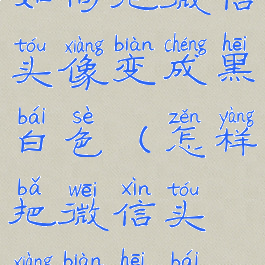 如何把微信
tóu xiàng biàn chéng hēi
头像变成黑
bái sè zěn yàng
白色（怎样
bǎ wēi xìn tóu
把微信头
xiàng biàn hēi bái